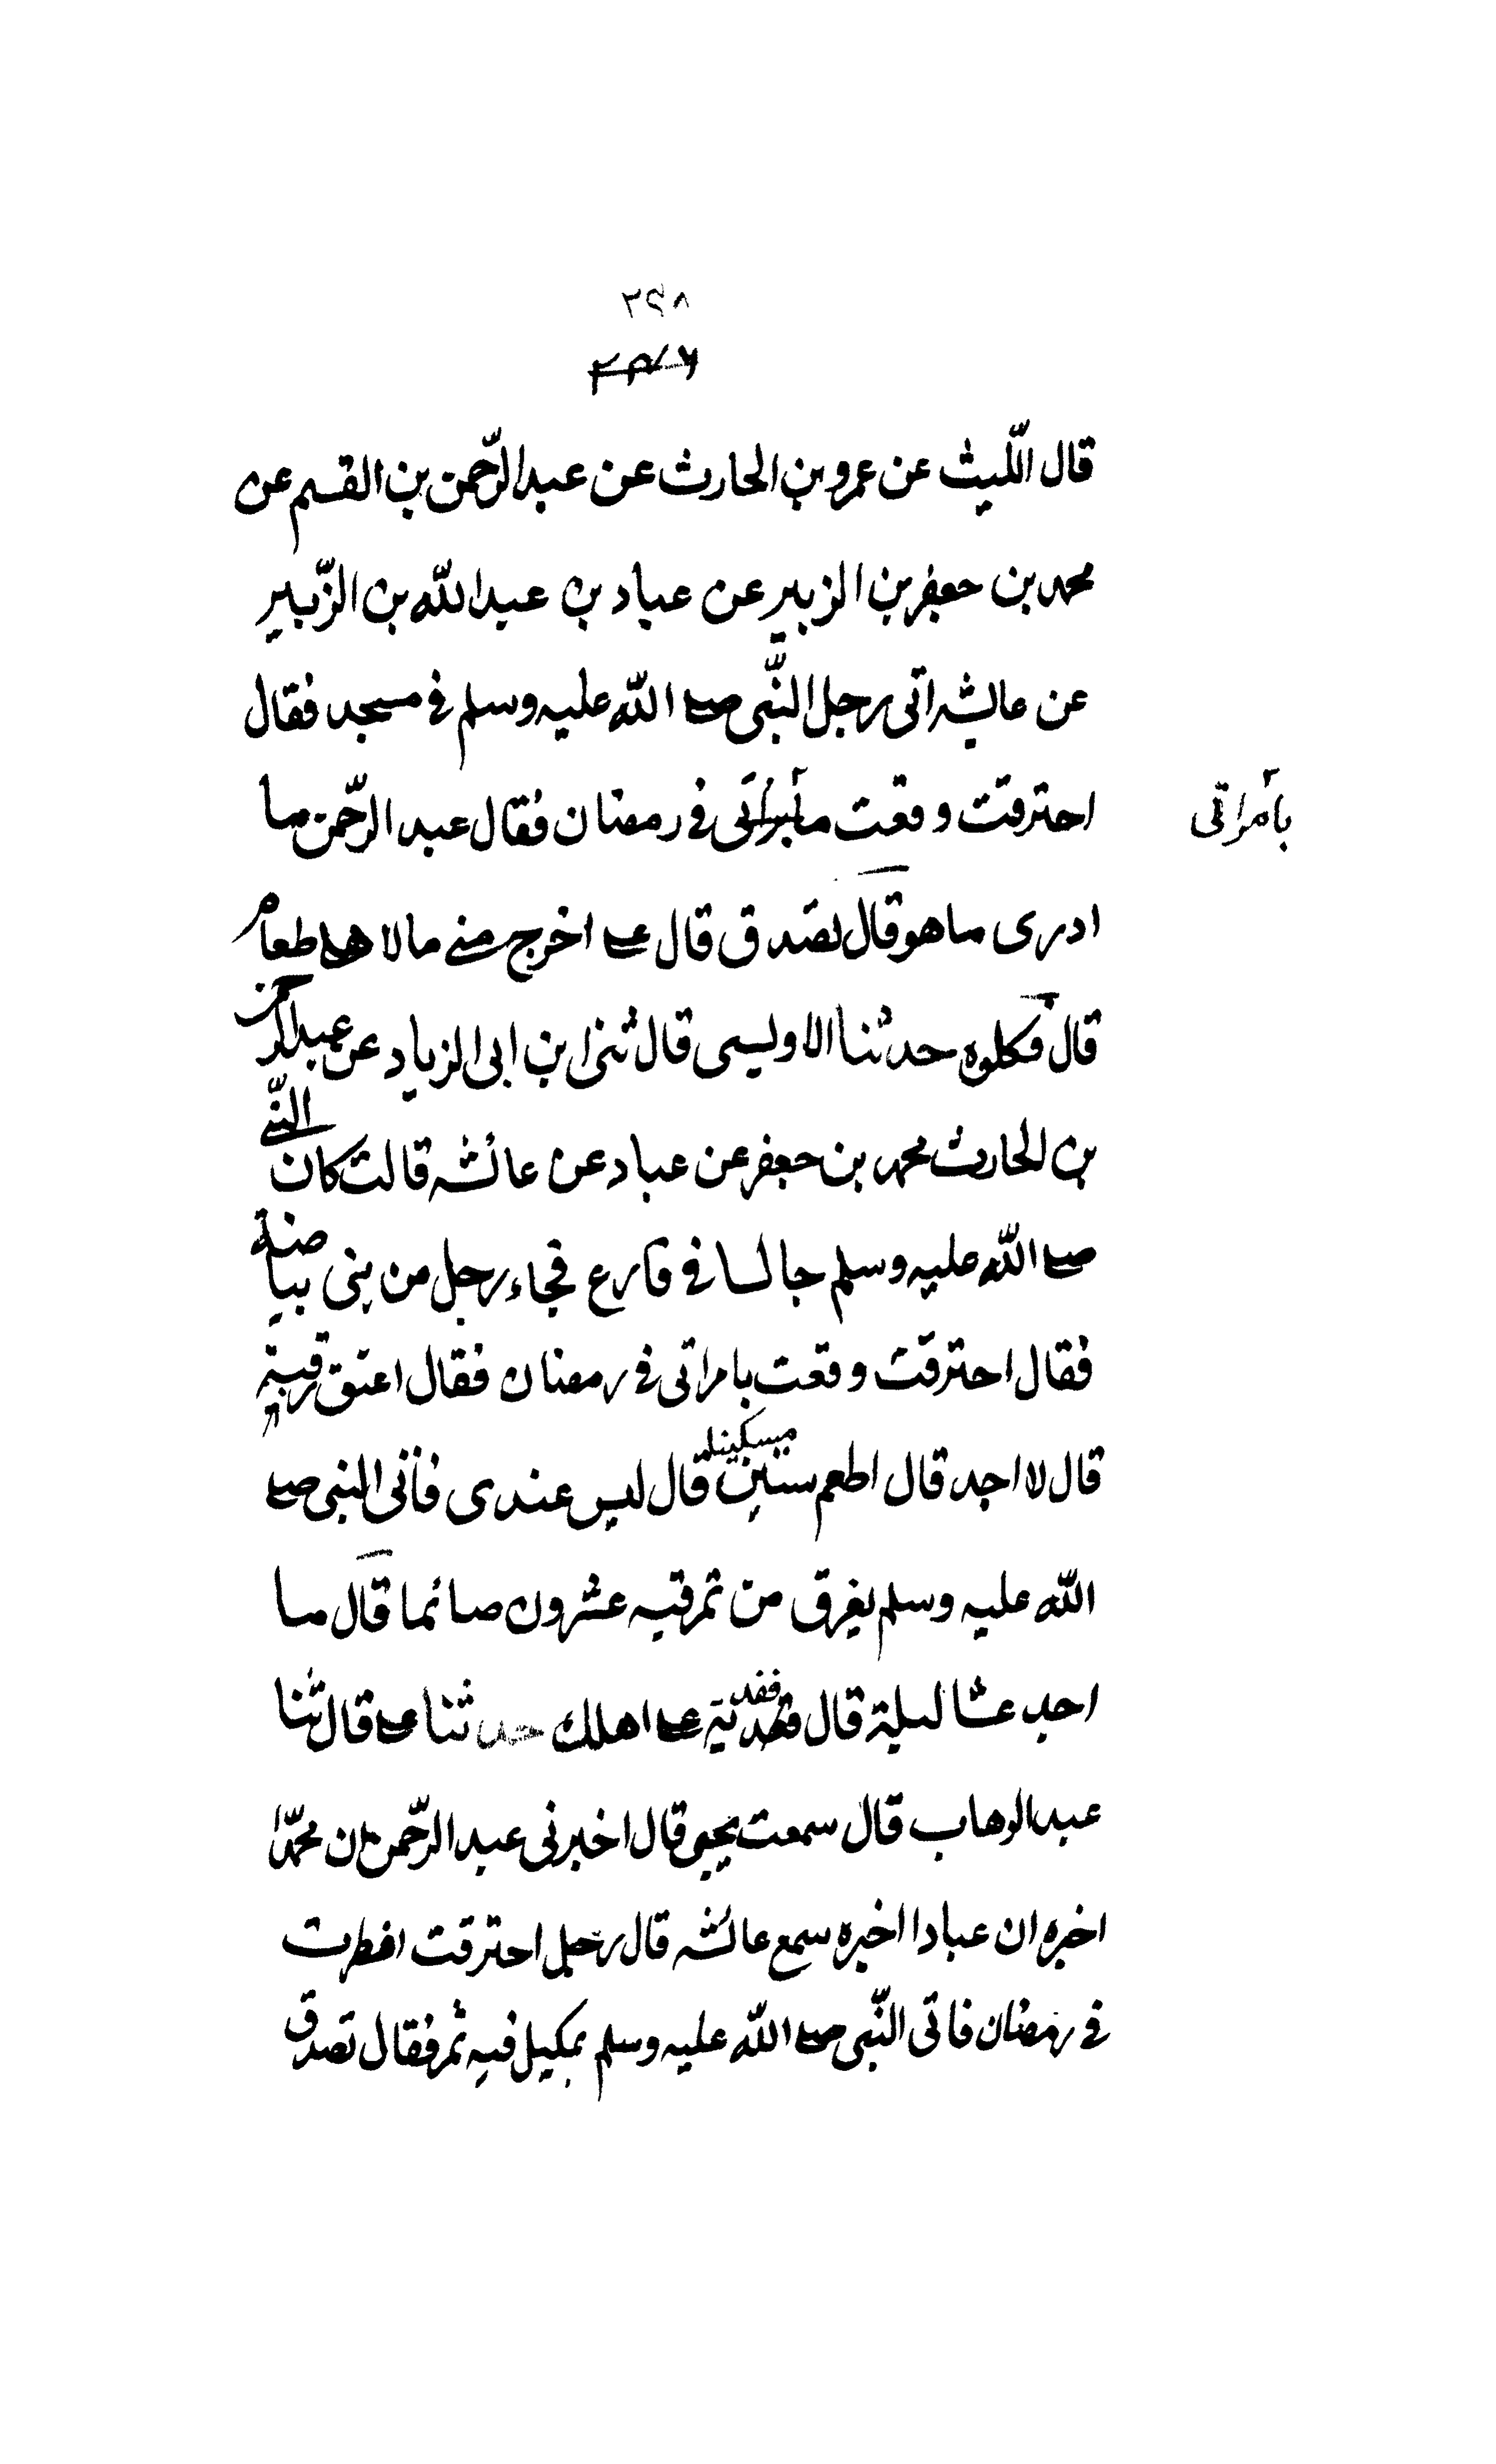 ٢٩٨
قال اللّيث عن عمرو بن الحارث عن عبد الرّحمن بن القسم عن
محمد بن جعفر بن الزبير عن عباد بن عبد اللّه بن الزّبير
عن عايشه اتى رجل النّبى صلى اللّه عليه وسلم فى مسجد فقال
احترقت وقعت بامراتى فى رمضان فقال عبد الرّحمن ما
بامراتى
ادرى ما هو قال تصدق قال على اخرج منى مالا هذا طعام
قال فكلوه حدثنا الاويسى قال ثنى ابن ابى الزياد عن عبد الرحمن
بن الحارث محمد بن جعفر عن عباد عن عائشه قالت كان النّبى
صلى اللّه عليه وسلم جالسا فى فارع فجاء رجل من بنى بياضة
فقال احترقت وقعت بامراتى فى رمضان فقال اعتق رقبة
قال لا اجد قال اطعم ستين مسكينا قال ليس عندى فأتى النبى صلى
اللّه عليه وسلم بفرق من تمر فيه عشرون صائما قال ما
احد عشا ليلة قال فقد اهلك حدثنا على قال ثنا
عبد الوهاب قال سمعت يحيى قال اخبرنى عبد الرّحمن ان محمّدا
اخبره ان عبادا اخبره سمع عائشه قال رجل احترقت افطرت
فى رمضان فاتى النّبى صلى اللّه عليه وسلم بمكيل فيه ثمر فقال تصدق